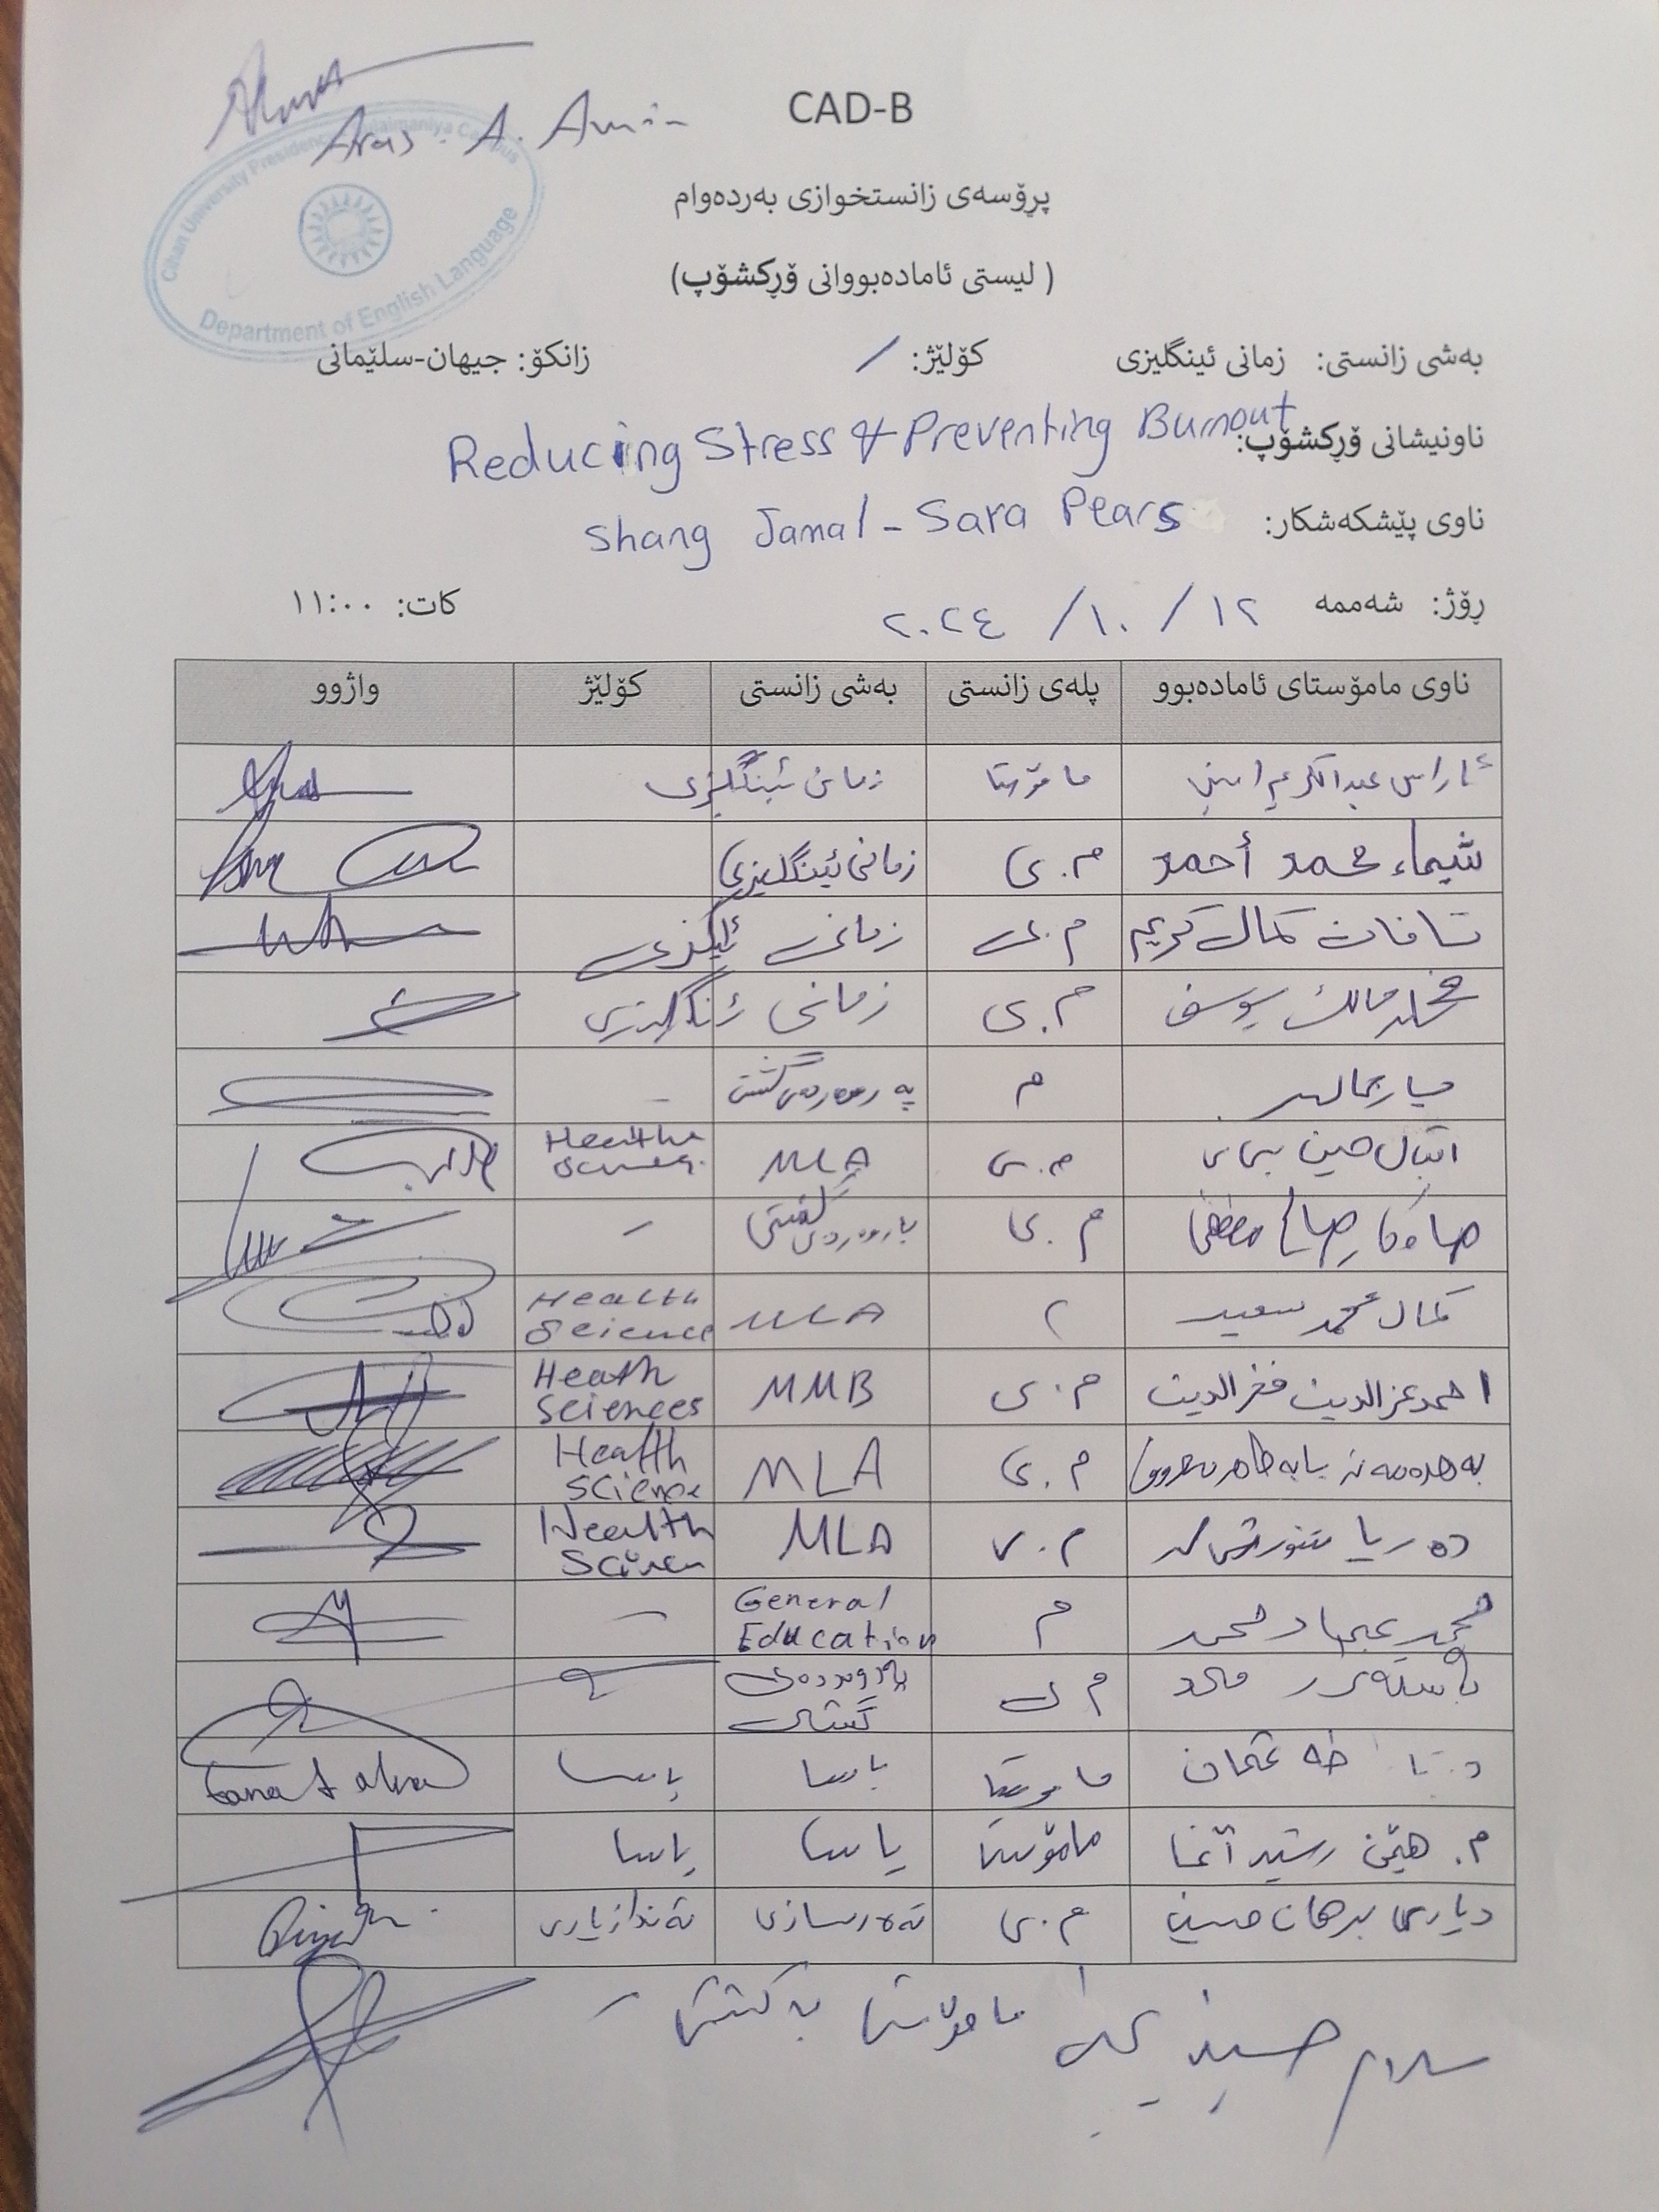 Aras. A. Amin
CAD-B
Cihan University Presidency Sulaimaniya Campus
Department of English Language
پڕۆسەی زانستخوازی بەردەوام
( لیستی ئامادەبووانی ۆڕکشۆپ)
بەشی زانستی: زمانی ئینگلیزی کۆلێژ: / زانکۆ: جیهان-سلێمانی
ناونیشانی ۆڕکشۆپ: Reducing Stress & Preventing Burnout
ناوی پێشکەشکار: Shang Jamal - Sara Pears
ڕۆژ: شەممە ١٢ / ١٠ / ٢٠٢٤ کات: ١١:٠٠
ناوی مامۆستای ئامادەبوو پلەی زانستی بەشی زانستی کۆلێژ واژوو
ئاراس عبدالكريم امين مامۆستا زمانی ئینگلیزی
شيماء محمد أحمد م.ی زمانی ئینگلیزی
كمال كريم م.ی زمانی
محمد مالك يوسف م.ی زمانی ئنگلیزی
م پەروەردەی گشتی -
حسين م.ی MLA Health
صالح مصطفى م.ی -
كمال محمد سعيد MLA Health Science
احمد عزالدين فخرالدين م.ی MMB Heath Sciences
م.ی MLA Health Science
دەریا م.ی MLA Health
محمد محمد م General Education -
م ی پەروەردەی گشتی
طه عثمان مامۆستا یاسا یاسا
م. هێمن رشيد آغا مامۆستا یاسا یاسا
دیاری برهان حسين م.ی تەلارسازی ئەندازیاری
سلام حسين مامۆستا بە گشتی -